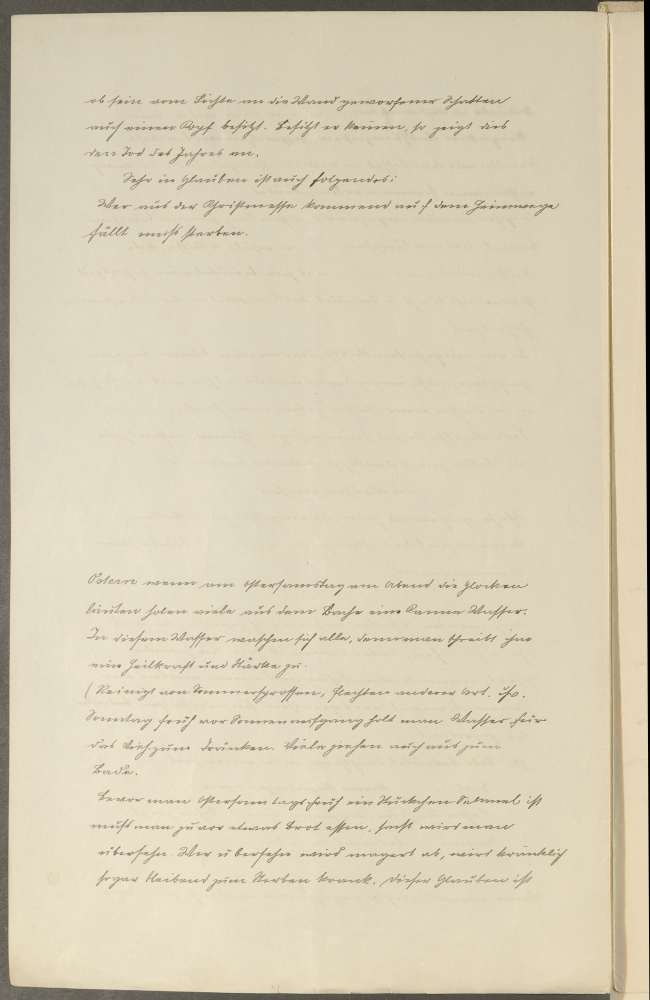 ob sein vom Lichte an die Wand geworfener Schatten
auch einen Kopf besitzt. Besitzt er keinen, so zeigt dies
den Tod des Jahres an.
Sehr in Glauben ist auch folgendes:
Wer aus der Christmesse kommend auf dem Heimwege
fällt muß sterben.
Ostern wenn am Ostersamstag am Abend die Glocken
läuten holen viele aus dem Bache eine Kanne Wasser.
In diesem Wasser waschen sich alle, denn man schreibt ihm
eine Heilkraft und Stärke zu.
(Reinigt von Sommersprossen, Flechten anderer Art.
Sonntag früh vor Sonnenaufgang holt man Wasser für
das Vieh zum dränken. Viele gehen auch aus zum
Bade.
Bevor man Ostersonntags früh ein Stückchen Semmel ißt
muß man zuvor etwas Brot essen, sonst wird man
übersehn. Wer übersehn wird magert ab, wird kränklich
sogar bleibend zum Sterben krank. Dieser Glauben ist